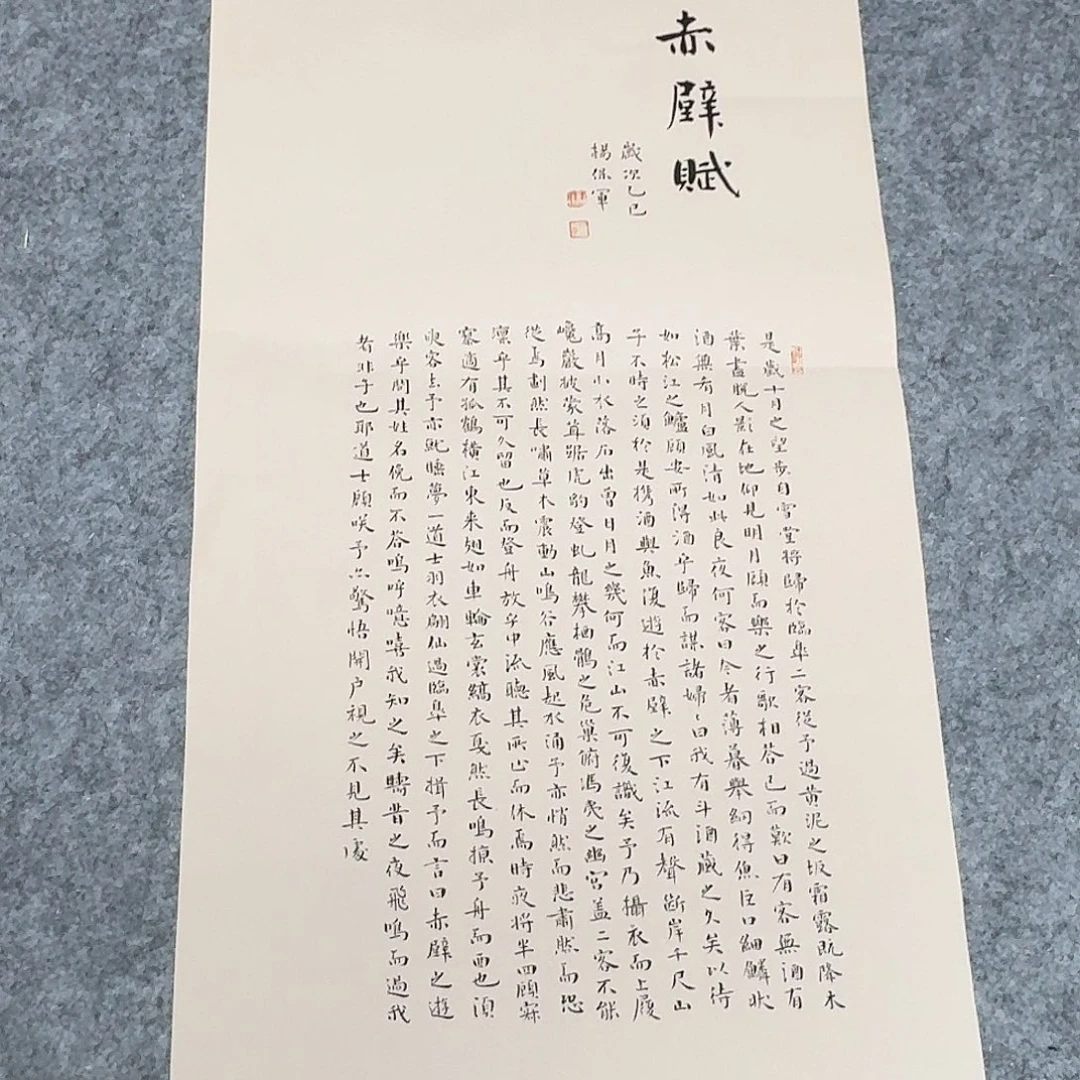 赤壁賦
歲次乙巳
楊保軍
是歲十月之望步自雪堂將歸於臨皋二客從予過黃泥之坂霜露既降木
葉盡脫人影在地仰見明月顧而樂之行歌相答已而歎曰有客無酒有
酒無肴月白風清如此良夜何客曰今者薄暮舉網得魚巨口細鱗狀
如松江之鱸顧安所得酒乎歸而謀諸婦〻曰我有斗酒藏之久矣以待
子不時之須於是攜酒與魚復遊於赤壁之下江流有聲斷岸千尺山
高月小水落石出曾日月之幾何而江山不可復識矣予乃攝衣而上履
巉巖披蒙茸踞虎豹登虬龍攀栖鶻之危巢俯馮夷之幽宮蓋二客不能
從焉劃然長嘯草木震動山鳴谷應風起水涌予亦悄然而悲肅然而恐
凜乎其不可久留也反而登舟放乎中流聽其所止而休焉時夜將半四顧寂
寥適有孤鶴橫江東來翅如車輪玄裳縞衣戛然長鳴掠予舟而西也須
臾客去予亦就睡夢一道士羽衣翩仙過臨皋之下揖予而言曰赤壁之遊
樂乎問其姓名俛而不答嗚呼噫嘻我知之矣疇昔之夜飛鳴而過我
者非子也耶道士顧咲予亦驚悟開戶視之不見其處